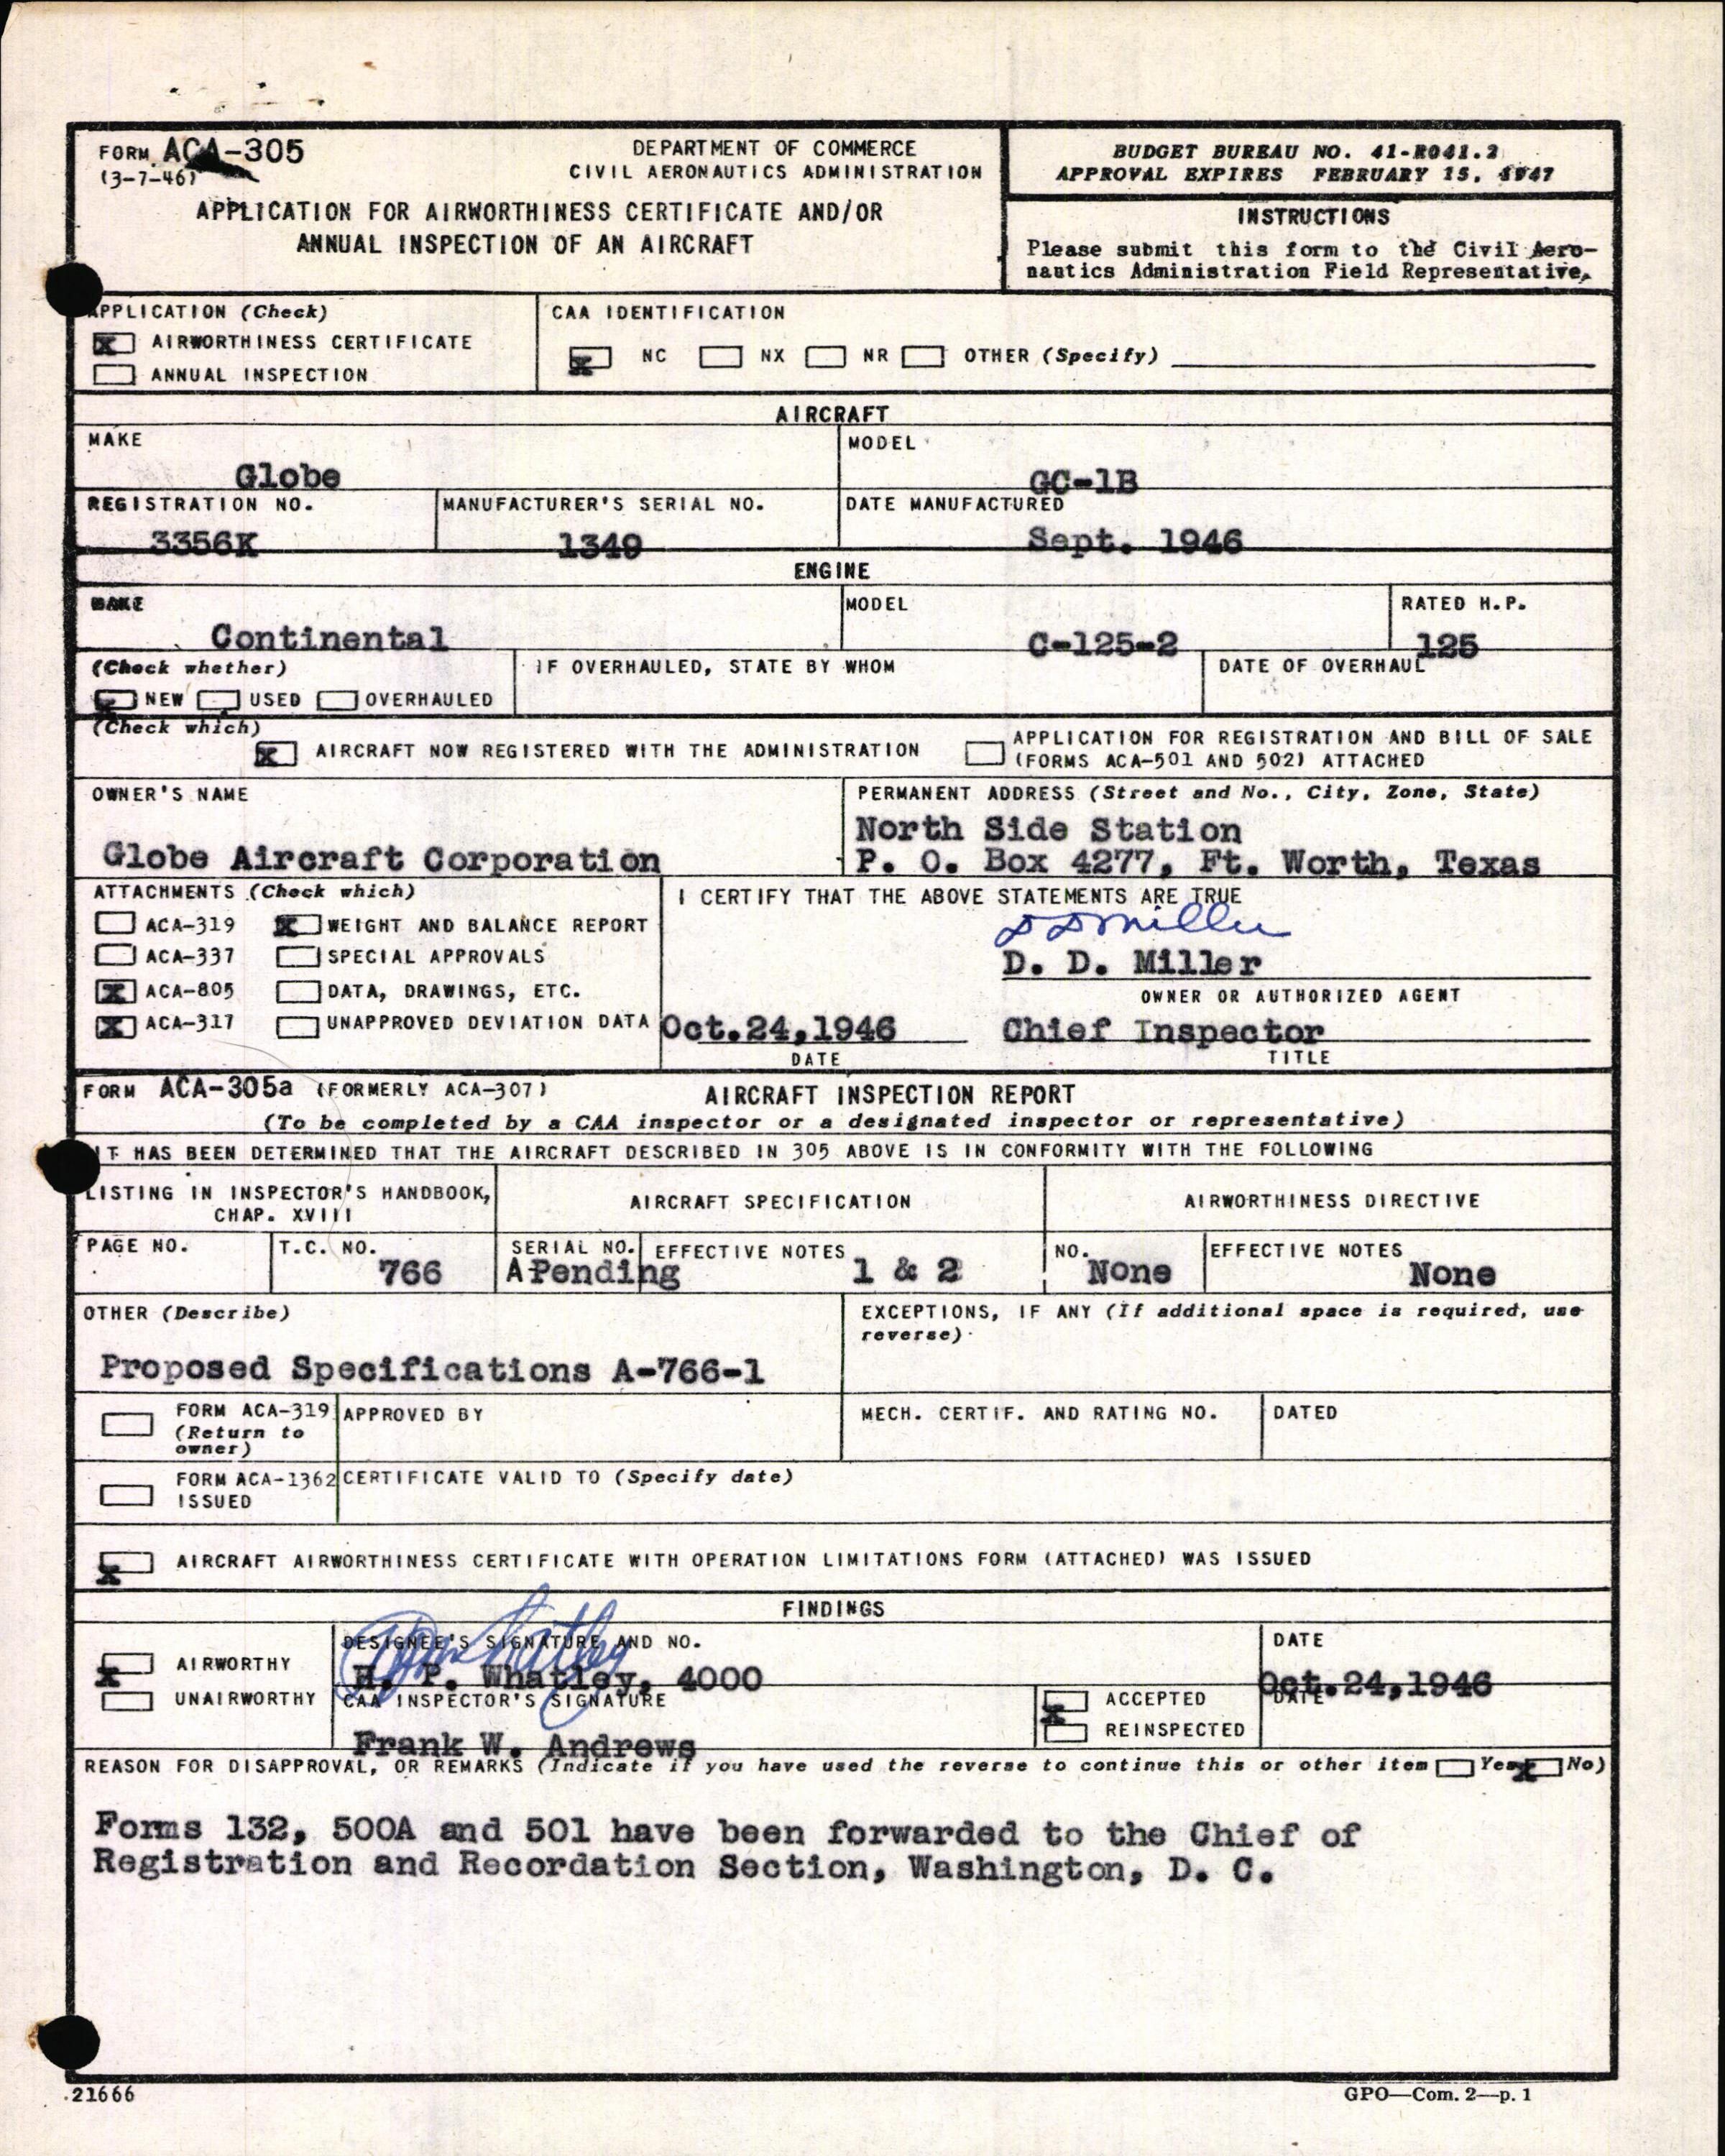 FORM ACA-305
(3-7-46)
DEPARTMENT OF COMMERCE
CIVIL AERONAUTICS ADMINISTRATION
APPLICATION FOR AIRWORTHINESS CERTIFICATE AND/OR
ANNUAL INSPECTION OF AN AIRCRAFT
BUDGET BUREAU NO. 41-R041.2
APPROVAL EXPIRES FEBRUARY 15, 1947
INSTRUCTIONS
Please submit this form to the Civil Aero-
nautics Administration Field Representative.
APPLICATION (Check)
X AIRWORTHINESS CERTIFICATE
ANNUAL INSPECTION
CAA IDENTIFICATION
X NC NX NR OTHER (Specify)
AIRCRAFT
MAKE
Globe
MODEL
GC-1B
REGISTRATION NO.
3356K
MANUFACTURER'S SERIAL NO.
1349
DATE MANUFACTURED
Sept. 1946
ENGINE
MAKE
Continental
MODEL
C-125-2
RATED H.P.
125
(Check whether)
X NEW USED OVERHAULED
IF OVERHAULED, STATE BY WHOM
DATE OF OVERHAUL
(Check which)
X AIRCRAFT NOW REGISTERED WITH THE ADMINISTRATION
APPLICATION FOR REGISTRATION AND BILL OF SALE
(FORMS ACA-501 AND 502) ATTACHED
OWNER'S NAME
Globe Aircraft Corporation
PERMANENT ADDRESS (Street and No., City, Zone, State)
North Side Station
P. O. Box 4277, Ft. Worth, Texas
ATTACHMENTS (Check which)
ACA-319 X WEIGHT AND BALANCE REPORT
ACA-337 SPECIAL APPROVALS
X ACA-805 DATA, DRAWINGS, ETC.
X ACA-317 UNAPPROVED DEVIATION DATA
I CERTIFY THAT THE ABOVE STATEMENTS ARE TRUE
D D Miller
D. D. Miller
OWNER OR AUTHORIZED AGENT
Oct.24,1946 Chief Inspector
DATE TITLE
FORM ACA-305a (FORMERLY ACA-307) AIRCRAFT INSPECTION REPORT
(To be completed by a CAA inspector or a designated inspector or representative)
IT HAS BEEN DETERMINED THAT THE AIRCRAFT DESCRIBED IN 305 ABOVE IS IN CONFORMITY WITH THE FOLLOWING
LISTING IN INSPECTOR'S HANDBOOK,
CHAP. XVIII
AIRCRAFT SPECIFICATION
AIRWORTHINESS DIRECTIVE
PAGE NO.
T.C. NO.
766
SERIAL NO.
A Pending
EFFECTIVE NOTES
1 & 2
NO.
None
EFFECTIVE NOTES
None
OTHER (Describe)
Proposed Specifications A-766-1
EXCEPTIONS, IF ANY (If additional space is required, use
reverse)
FORM ACA-319
(Return to
owner)
APPROVED BY
MECH. CERTIF. AND RATING NO.
DATED
FORM ACA-1362
ISSUED
CERTIFICATE VALID TO (Specify date)
X AIRCRAFT AIRWORTHINESS CERTIFICATE WITH OPERATION LIMITATIONS FORM (ATTACHED) WAS ISSUED
FINDINGS
X AIRWORTHY
UNAIRWORTHY
DESIGNEE'S SIGNATURE AND NO.
H. P. Whatley, 4000
DATE
Oct.24,1946
CAA INSPECTOR'S SIGNATURE
Frank W. Andrews
X ACCEPTED
REINSPECTED
DATE
REASON FOR DISAPPROVAL, OR REMARKS (Indicate if you have used the reverse to continue this or other item Yes X No)
Forms 132, 500A and 501 have been forwarded to the Chief of
Registration and Recordation Section, Washington, D. C.
21666
GPO—Com. 2—p. 1